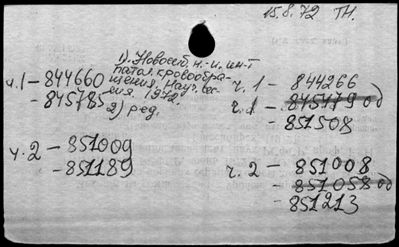 15.8.72 ТН.
1). Новосиб. н.-и. ин-т
патол. кровообра-
щения. Науч. сес-
сия. 1972.
2) ред.
ч.1 – 844660
– 845785
ч.2 – 851009
– 851189
ч.1 – 844266
ч.1 – 845479 об
– 851508
ч.2 – 851008
– 851058 об
– 851213